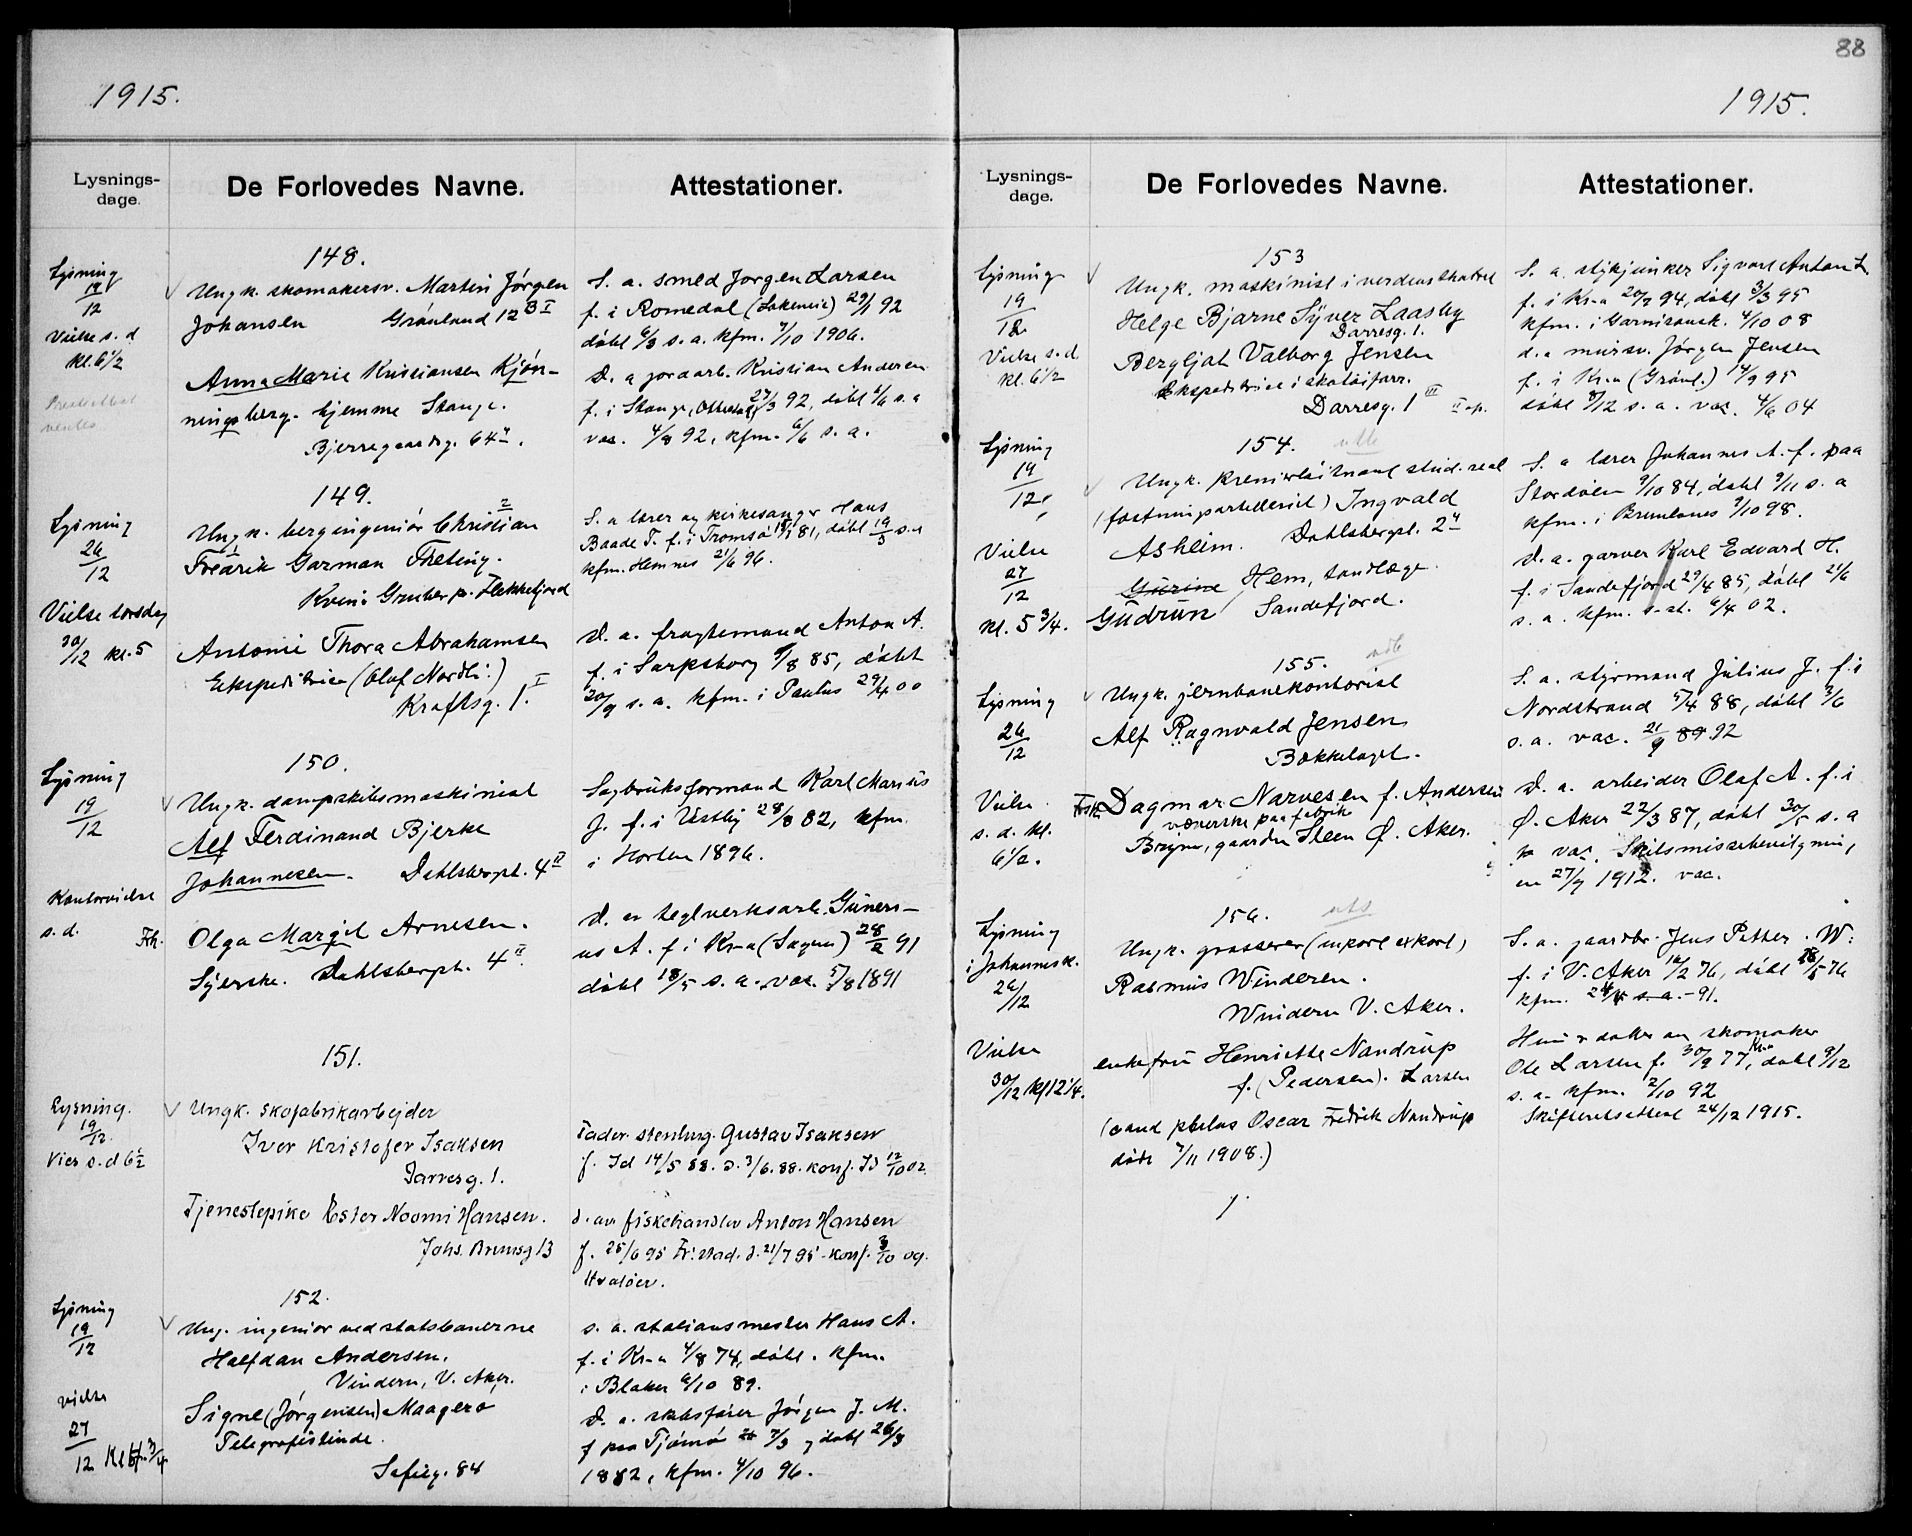 88
1915.
Lysnings-
dage.
De Forlovedes Navne.
Attestationer.
148.
Lysning
19/12
Vielse s. d
kl. 6 1/2
Ungk. skomakersv. Martin Jörgen
Johansen Grönland 12 B I
Anna Marie Kristiansen Kjön-
ningsberg. hjemme Stange.
Bjerregaardsg. 64
S. a. smed Jorgen Larsen
f. i Romedal 29/1 92
döbt 6/3 s. a. kfm. 7/10 1906.
D. a jordarb. Kristian Andersen
f. i Stange, 27/3 92, döbt 6/6 s. a
vac. 4/8 92, kfm. 6/6 s. a.
149.
Lysning
26/12
Vielse torsdag
30/12 kl. 5
Ungk. bergingeniör Christian
Fredrik Garman Theting.
Kvina Gruber p. Flekkefjord
Antonie Thora Abrahamsen
Ekspeditrice (Olaf Nordli)
Kraftsg. 1. I
S. a lærer og kirkesanger Hans
Baade T. f. i Tromsö 15/1 81, döbt 19/3 s. a
kfm. Hemnes 21/6 96.
D. a. fragtemand Anton A.
f. i Sarpsborg 9/8 85, döbt
20/9 s. a. kfm. i Paulus 29/4 00
150.
Lysning
19/12
Kontorvielse
s. d.
Frk.
Ungk. dampskibsmaskinist
Alf Ferdinand Bjerke
Johannesen. Dahlsbergst. 4 II
Olga Margit Arnesen.
Syerske. Dahlsbergst. 4 II
Sagbruksformand Karl Marius
J. f. i Vestby 28/8 82, kfm.
i Horten 1896.
D. av teglverksarb. Guneri-
us A. f. i Kr-a (Sagene) 28/2 91
döbt 18/5 s. a. vac. 5/8 1891
151.
Lysning.
19/12.
Vies s. d 6 1/2
Ungk. skofabrikarbejder
Iver Kristofer Isaksen
Darresg. 1.
Tjenestepike Ester Noomi Hansen.
Johs. Brunsg 13
Fader. stenhug. Gustav Isaksen
f. Id 14/5 88. d. 3/6. 88. konf. Id 12/10 02.
d. av fiskehandler Anton Hansen
f. 25/6 95 Fr. stad. d. 21/7 95 - konf. 3/10 09.
Hvalöer.
152.
Lysning
19/12
vielse
27/12 Kl 3/4
Ung. ingeniör ved statsbanerne
Halfdan Andersen.
Vindern, V. Aker.
Signe (Jörgensen) Maagerö
Telegrafistinde.
Sofieg. 84
s. a. stationsmester Hans A.
f. i Kr-a 4/8 74, döbt. kfm.
i Blaker 6/10 89.
D. a. skibsförer Jörgen J. M.
f paa Tjömö 7/3 döbt 26/3
1882, kfm. 4/10 96.
1915.
Lysnings-
dage.
De Forlovedes Navne.
Attestationer.
153
Lysning
19/12
Vielse s. d.
kl. 6 1/2
Ungk. maskinist i verdensteatret
Helge Bjarne Syver Laasby
Darresg. 1.
Bergljot Valborg Jensen
Ekspeditrice i skotöiforr.
Darresg. 1 III II op.
S. a. stykjunker Sigvart Anton L
f. i Kr-a 20/2 94, döbt 3/3 95
kfm. i Garnisonsk. 4/10 08
d. a mursv. Jörgen Jensen
f. i Kr-a (Grönl.) 14/9 95
döbt 8/12 s. a. vac. 4/6 04
154.
Lysning
19/12
Vielse
27/12
kl. 5 3/4.
Ungk. premierlöitnant stud. real
(fæstningsartilleriet) Ingvald
Asheim. Dahlsbergst. 2
Gurine Hem, tandlæge
Gudrun Sandefjord.
S. a lærer Johannes A. f. paa
Stordöen 9/10 84, döbt 9/11 s. a
kfm. i Bremanes 2/10 98.
D. a. garver Karl Edvard H.
f. i Sandefjord 29/4 85, döbt 21/6
s. a. kfm. s. st. 6/4 02.
155.
Lysning
26/12
Vielse
s. d. kl.
6 1/2.
Ungk. jernbanekontorist
Alf Ragnvald Jensen
Bækkelaget.
Frsk. Dagmar Narvesen f. Andersen
væverske paa fabrik
Bryn, gaarden Steen Ø. Aker.
S. a. styrmand Julius J. f. i
Nordstrand 5/4 88, döbt 3/6
s. a. vac. 21/9 89 92
D. a. arbeider Olaf A. f. i
Ø. Aker 22/3 87, döbt 30/5 s. a
vac. Skilsmissebevilgning
en 27/7 1912. vac.
156.
Lysning
i Johannesk.
26/12
Vielse
30/12 kl 12 1/4.
Ungk. grosserer (import export)
Rasmus Winderen.
Windern V. Aker.
enkefru Henriette Nandrup
f. (Pedersen). Larsen
(cand philos Oscar Fredrik Nandrup
döde 7/11 1908.)
S. a. gaardbr. Jens Petter W.
f. i V. Aker 16/2 76, döbt 28/5 76
kfm. s. a. - 91.
Hun er datter av skomaker
Ole Larsen f. 30/9 77 Kr-a, döbt 9/12
s. a. kfm. 2/10 92
Skifteretsattest 24/12 1915.